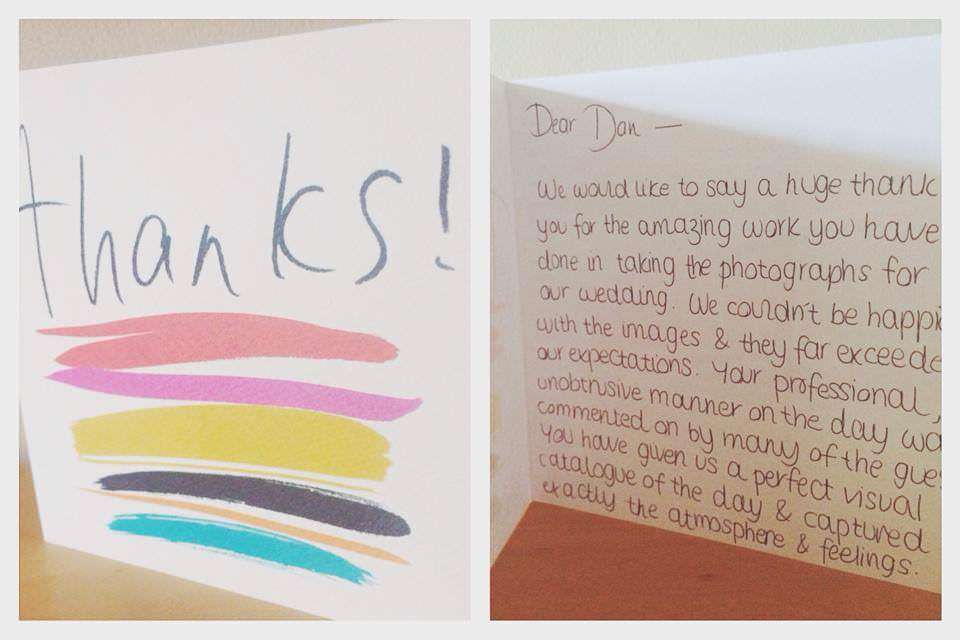 thanks!
Dear Dan —
We would like to say a huge thank
you for the amazing work you have
done in taking the photographs for
our wedding. We couldn't be happi
with the images & they far exceede
our expectations. Your professional,
unobtrusive manner on the day wa
commented on by many of the gues
You have given us a perfect visual
catalogue of the day & captured
exactly the atmosphere & feelings.